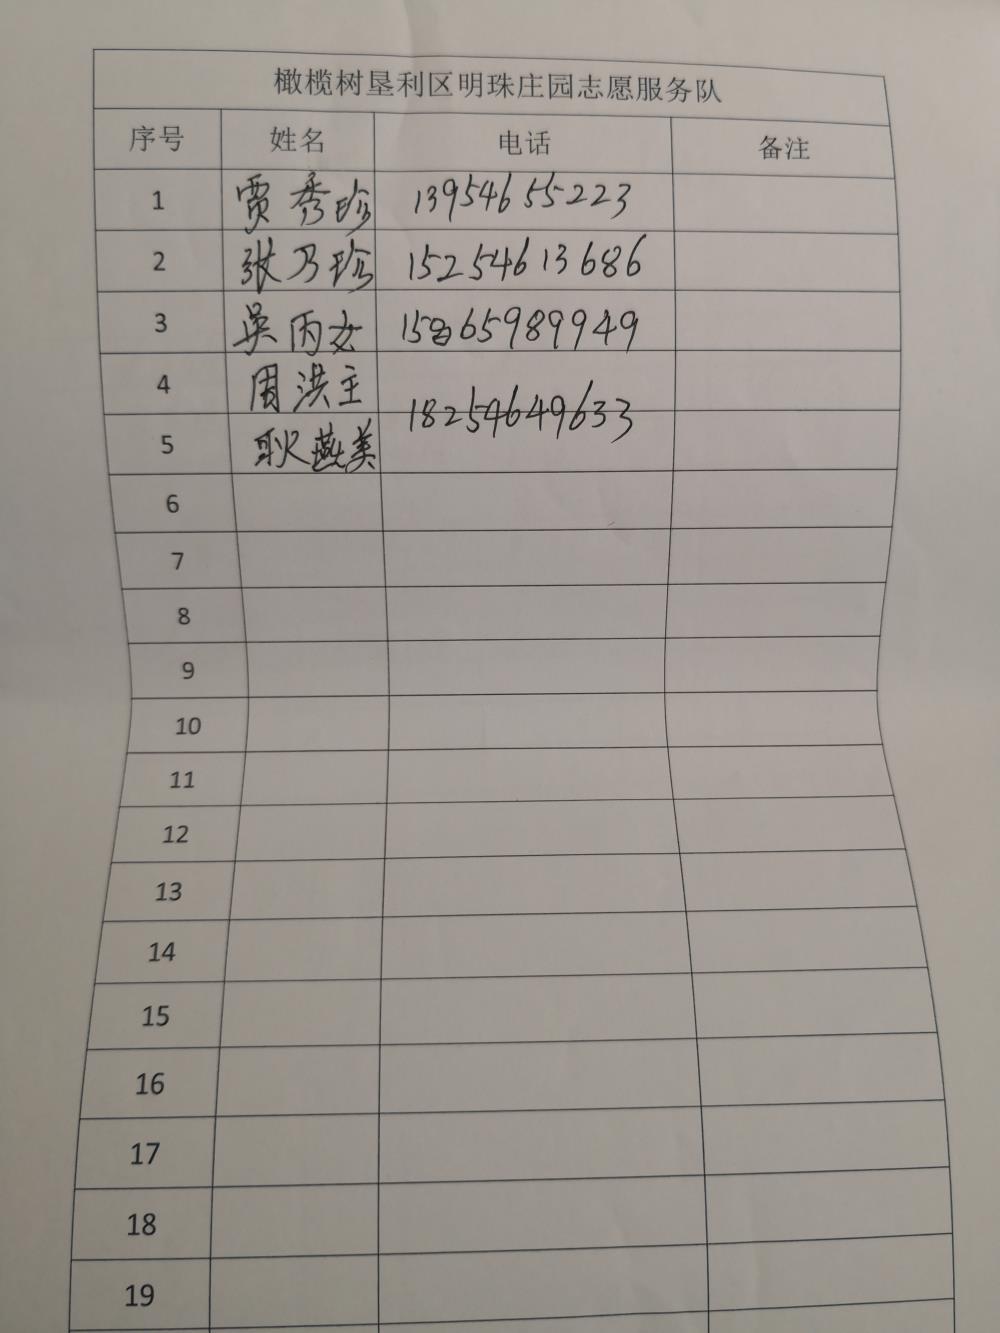 橄榄树垦利区明珠庄园志愿服务队
序号 姓名 电话 备注
1 贾秀珍 13954655223
2 张乃珍 15254613686
3 吴丙女 15865989949
4 周洪主 18254649633
5 耿燕美
6
7
8
9
10
11
12
13
14
15
16
17
18
19